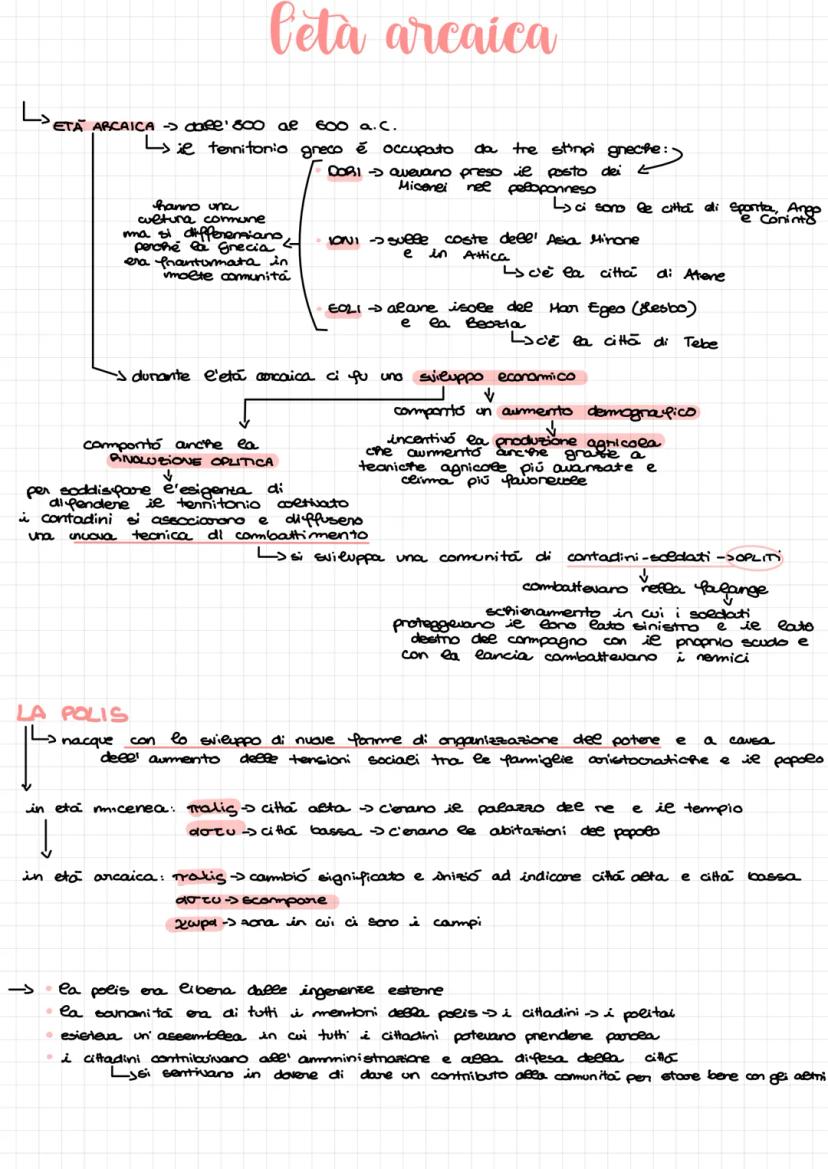 l'età arcaica
ETÀ ARCAICA → dall'800 al 600 a.C.
il territorio greco è occupato da tre stirpi greche:
• DORI → avevano preso il posto dei
Micenei nel peloponneso
ci sono le città di Sparta, Argo
e Corinto
hanno una
cultura comune
ma si differenziano
perché la Grecia
era frantumata in
molte comunità
• IONI → sulle coste dell'Asia Minore
e in Attica
c'è la città di Atene
• EOLI → alcune isole del Mar Egeo (Lesbo)
e la Beozia
c'è la città di Tebe
durante l'età arcaica ci fu uno sviluppo economico
comportò un aumento demografico
incentivò la produzione agricola
che aumentò anche grazie a
tecniche agricole più avanzate e
clima più favorevole
comportò anche la
RIVOLUZIONE OPLITICA
per soddisfare l'esigenza di
difendere il territorio coltivato
i contadini si associarono e diffusero
una nuova tecnica di combattimento
si sviluppa una comunità di contadini-soldati → OPLITI
combattevano nella falange
schieramento in cui i soldati
proteggevano il loro lato sinistro e il lato
destro del compagno con il proprio scudo e
con la lancia combattevano i nemici
LA POLIS
nacque con lo sviluppo di nuove forme di organizzazione del potere e a causa
dell'aumento delle tensioni sociali tra le famiglie aristocratiche e il popolo
in età micenea: πολις → città alta → c'erano il palazzo del re e il tempio
αστυ → città bassa → c'erano le abitazioni del popolo
in età arcaica: πολις → cambiò significato e iniziò ad indicare città alta e città bassa
αστυ → scompare
χωρα → zona in cui ci sono i campi
→ • la polis era libera dalle ingerenze esterne
• la sovranità era di tutti i membri della polis → i cittadini → i politai
• esisteva un'assemblea in cui tutti i cittadini potevano prendere parola
• i cittadini contribuivano all'amministrazione e alla difesa della città
si sentivano in dovere di dare un contributo alla comunità per stare bene con gli altri